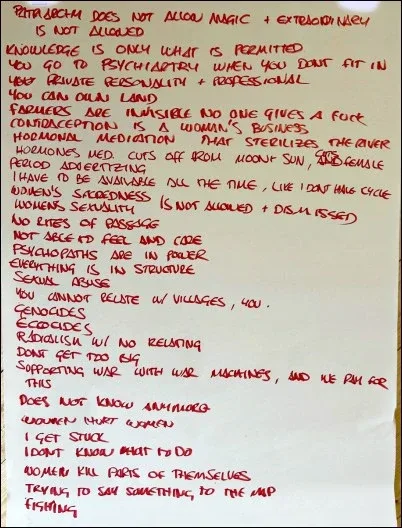 PATRIARCHY DOES NOT ALLOW MAGIC + EXTRAORDINARY
IS NOT ALLOWED
KNOWLEDGE IS ONLY WHAT IS PERMITTED
YOU GO TO PSYCHIARTRY WHEN YOU DONT FIT IN
PRIVATE PERSONALITY + PROFESSIONAL
YOU CAN OWN LAND
FARMERS ARE INVISIBLE NO ONE GIVES A FUCK
CONTRACEPTION IS A WOMAN'S BUSINESS
HORMONAL MEDICATION THAT STERILIZES THE RIVER
HORMONES MED. CUTS OFF FROM MOON + SUN, FEMALE
PERIOD ADVERTIZING
I HAVE TO BE AVAILABLE ALL THE TIME, LIKE I DONT HAVE CYCLE
WOMEN'S SACREDNESS
WOMENS SEXUALITY IS NOT ALLOWED + DISMISSED
NO RITES OF PASSAGE
NOT ABLE TO FEEL AND CARE
PSYCHOPATHS ARE IN POWER
EVERYTHING IS IN STRUCTURE
SEXUAL ABUSE
YOU CANNOT RELATE W/ VILLAGES, YOU.
GENOCIDES
ECOCIDES
RADICALISM W/ NO RELATING
DONT GET TOO BIG
SUPPORTING WAR WITH WAR MACHINES, AND WE PAY FOR
THIS
DOES NOT KNOW ANYMORE
WOMEN HURT WOMEN
I GET STUCK
I DONT KNOW WHAT TO DO
WOMEN KILL PARTS OF THEMSELVES
TRYING TO SAY SOMETHING TO THE MAP
FISHING